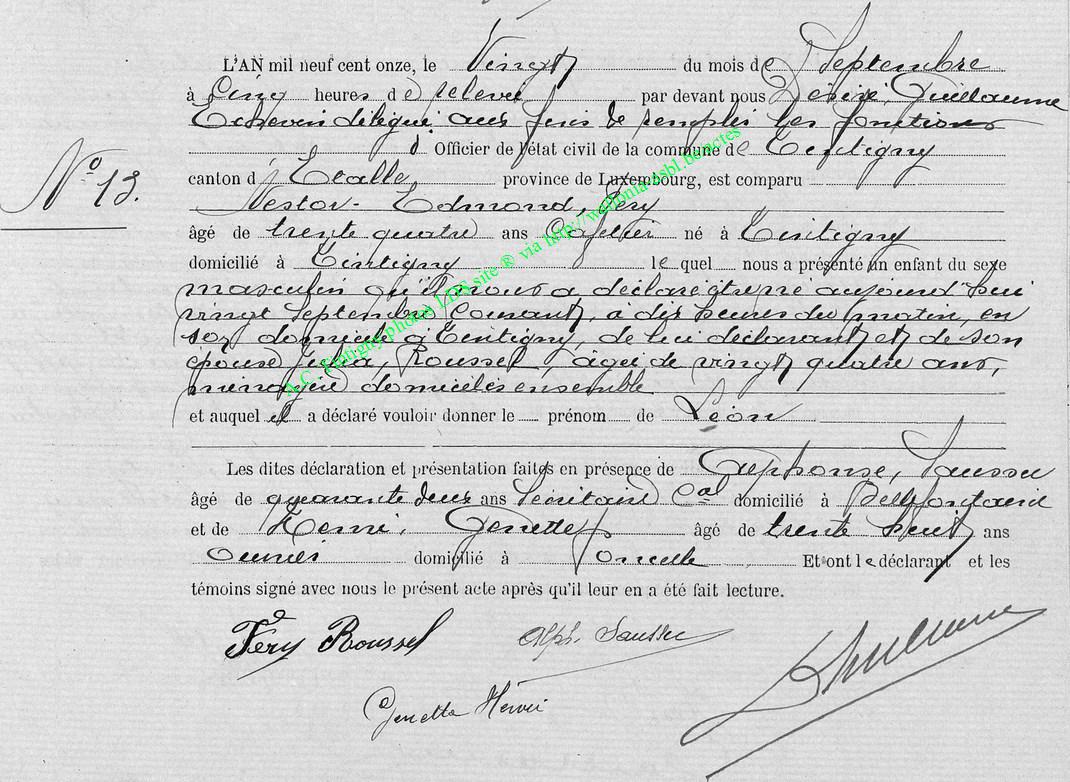 L'AN mil neuf cent onze, le Vingt du mois de Septembre
à Cinq heures de relevée par devant nous Désiré, Guillaume
Echevin délégué aux fins de remplir les fonctions
d' Officier de l'état civil de la commune de Tintigny
N° 13.
canton d' Etalle, province de Luxembourg, est comparu
Nestor-Edmond, Féry
âgé de trente quatre ans Cafetier né à Tintigny
domicilié à Tintigny lequel nous a présenté un enfant du sexe
masculin qu'il nous a déclaré être né aujourd'hui
vingt Septembre Courant, à dix heures du matin, en
son domicile à Tintigny, de lui déclarant et de son
épouse Roussel, âgée de vingt quatre ans,
ménagère domiciliés ensemble
et auquel il a déclaré vouloir donner le prénom de Léon
Les dites déclaration et présentation faites en présence de Alphonse, Saussu
âgé de quarante deux ans Secrétaire Cal domicilié à Bellefontaine
et de Henri, Genette âgé de trente huit ans
domicilié à Et ont le déclarant et les
témoins signé avec nous le présent acte après qu'il leur en a été fait lecture.
Féry Roussel Alph. Saussu
Genette Henri
A.C. Tintigny photos LDS site ® via http://wallonia-asbl.be/actes